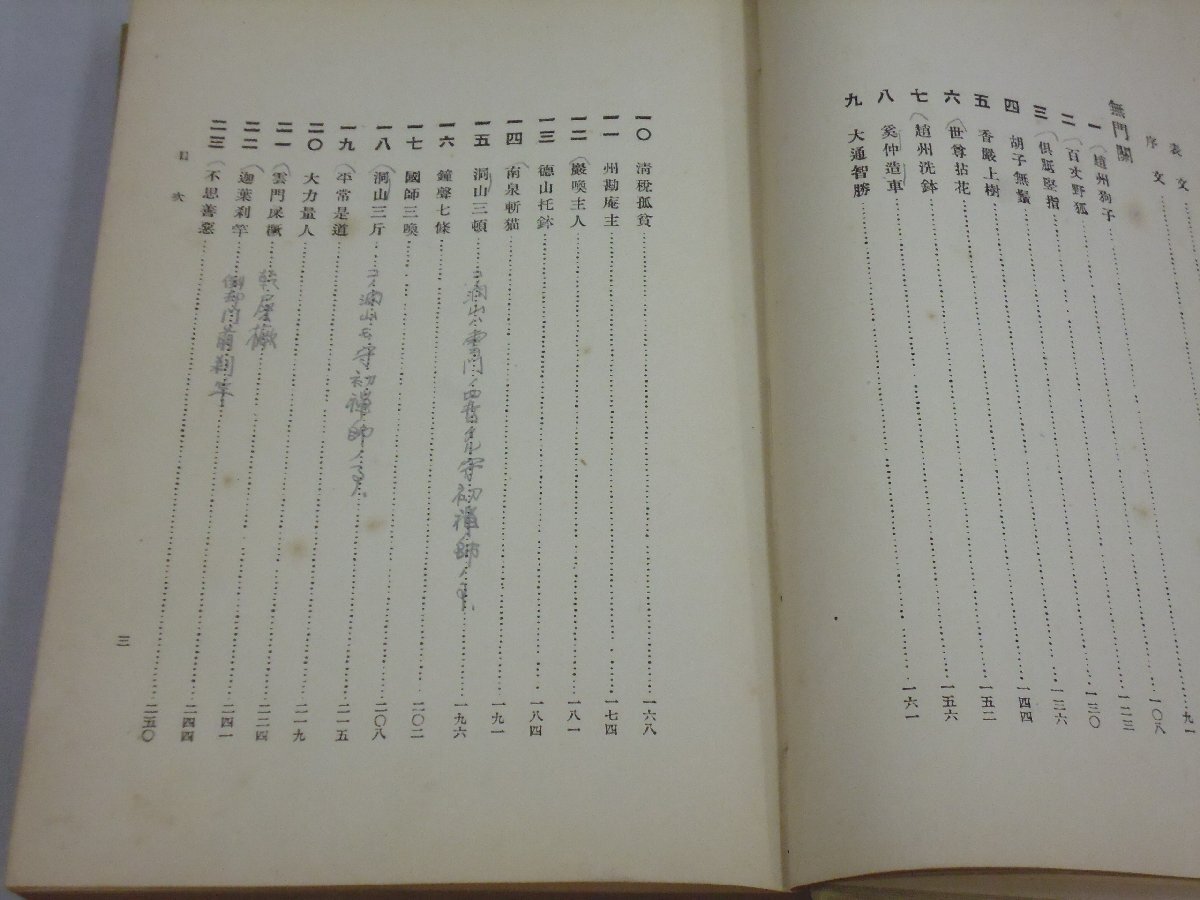 表文
序文
無門關
一 趙州狗子 九一
二 百丈野狐 一〇八
三 俱胝竪指 一二三
四 胡子無鬚 一三〇
五 香嚴上樹 一三六
六 世尊拈花 一四四
七 趙州洗鉢 一五二
八 奚仲造車 一五六
九 大通智勝 一六一
一〇 清稅孤貧 一六八
一一 州勘庵主 一七四
一二 巖喚主人 一八一
一三 德山托鉢 一八四
一四 南泉斬猫 一九一
一五 洞山三頓 一九六
コノ洞山ハ雲門ノ守初禪師ノ
一六 鐘聲七條 二〇二
一七 國師三喚 二〇八
一八 洞山三斤 二一五
コノ洞山モ守初禪師ノ
一九 平常是道 二一九
二〇 大力量人 二二四
二一 雲門屎橛 二四一
乾屎橛
二二 迦葉刹竿 二四四
倒却門前刹竿
二三 不思善惡 二五〇
目次
三